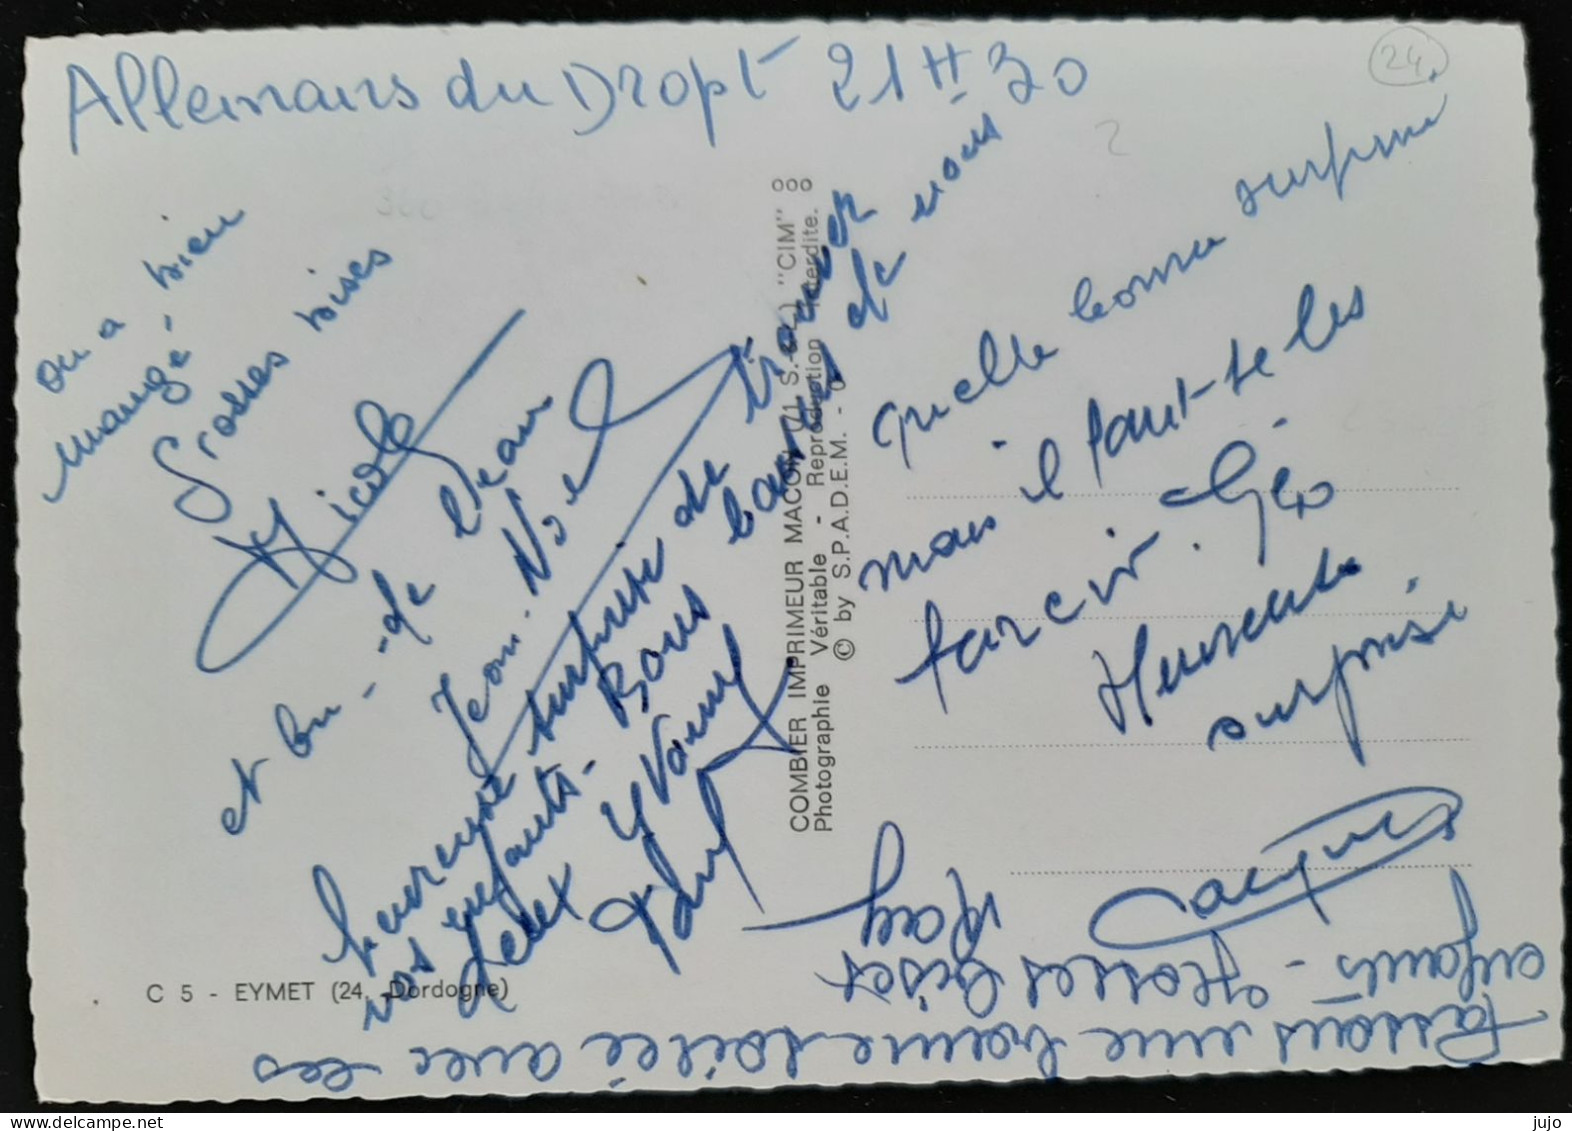 Allemans du Dropt 21H30
24.
on a bien
mangé -
Grosses bises
Nicole
et bu - de l'eau
Jean. Noel
heureuse surprise de trouver
vos enfants - Bons baisers de nous
deux Yvonne
quelle bonne surprise
mais il faut se les
farcir. Géo
Heureuse
surprise
Jacques
Passons une bonne soirée avec les
enfants - grosses bises
Ray
COMBIER IMPRIMEUR MACON (71 S.-&-L.) "CIM"
Photographie Véritable - Reproduction Interdite.
© by S.P.A.D.E.M. -
C 5 - EYMET (24. -Dordogne)
www.delcampe.net
jujo